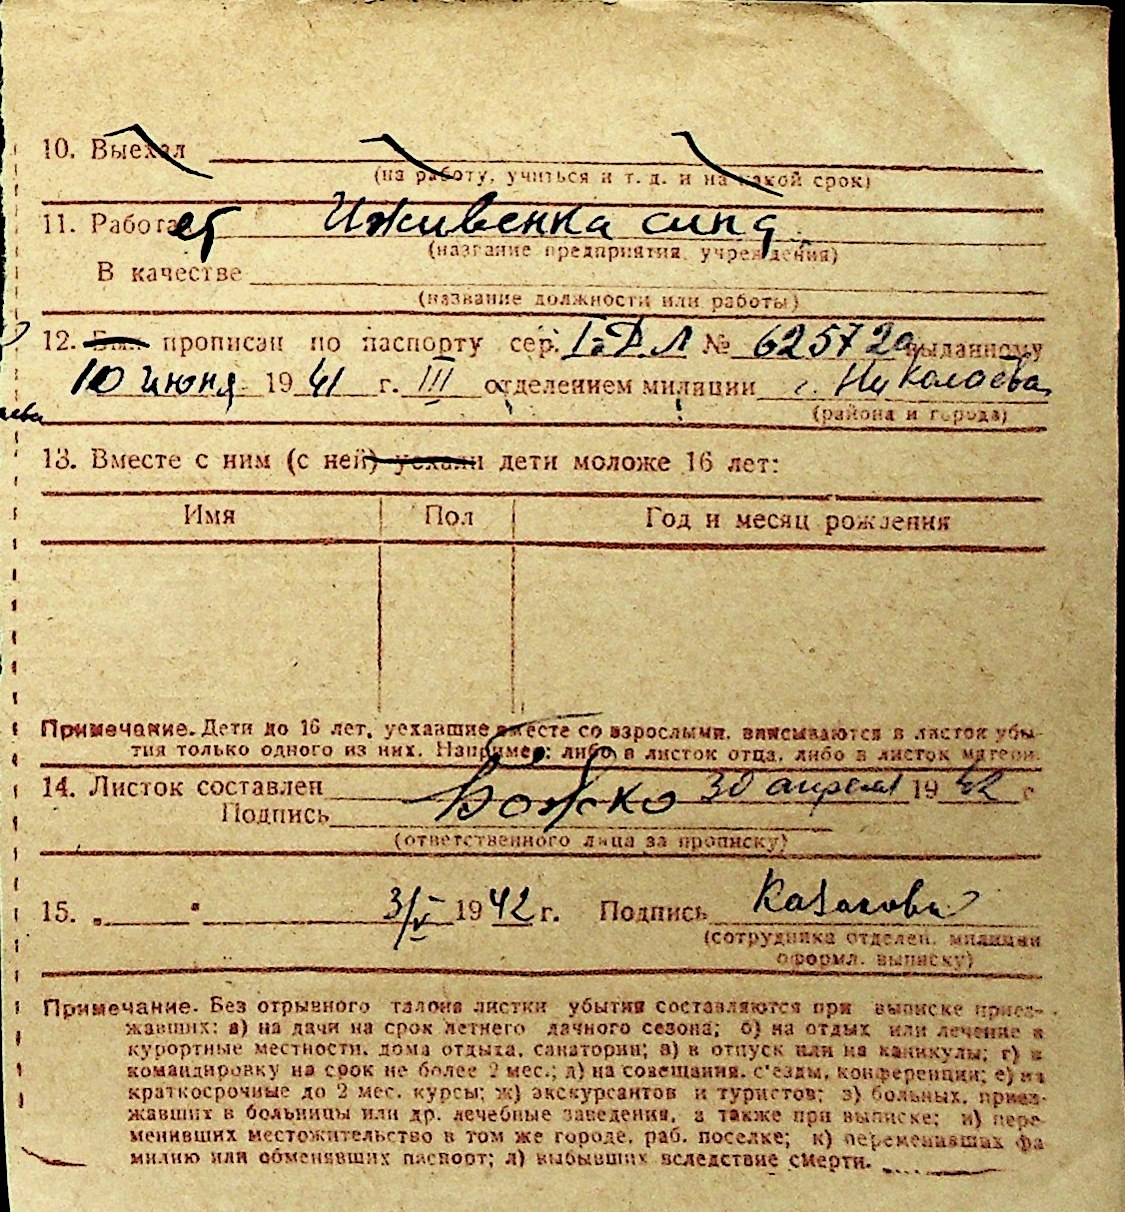 10. Выехал
(на работу, учиться и т. д. и на какой срок)
11. Работает Иживенка
(название предприятия, учреждения)
В качестве
(название должности или работы)
12. прописан по паспорту сер. № 625720 выданному
10 июня 1941 г. III отделением милиции г. Николаева
(района и города)
13. Вместе с ним (с ней) уехали дети моложе 16 лет:
Имя Пол Год и месяц рождения
Примечание. Дети до 16 лет, уехавшие вместе со взрослыми, вписываются в листок убы-
тия только одного из них. Например: либо в листок отца, либо в листок матери.
14. Листок составлен 30 апреля 1942 г
Подпись Божко
(ответственного лица за прописку)
15. „ " 3/V 1942 г. Подпись Казакова
(сотрудника отделен. милиции
оформл. выписку)
Примечание. Без отрывного талона листки убытия составляются при выписке приез-
жавших: а) на дачи на срок летнего дачного сезона; б) на отдых или лечение в
курортные местности, дома отдыха, санатории; в) в отпуск или на каникулы; г) в
командировку на срок не более 2 мес.; д) на совещания, с'езды, конференции; е) на
краткосрочные до 2 мес. курсы; ж) экскурсантов и туристов; з) больных, приез-
жавших в больницы или др. лечебные заведения, а также при выписке; и) пере-
менивших местожительство в том же городе, раб. поселке; к) переменивших фа-
милию или обменявших паспорт; л) выбывших вследствие смерти.